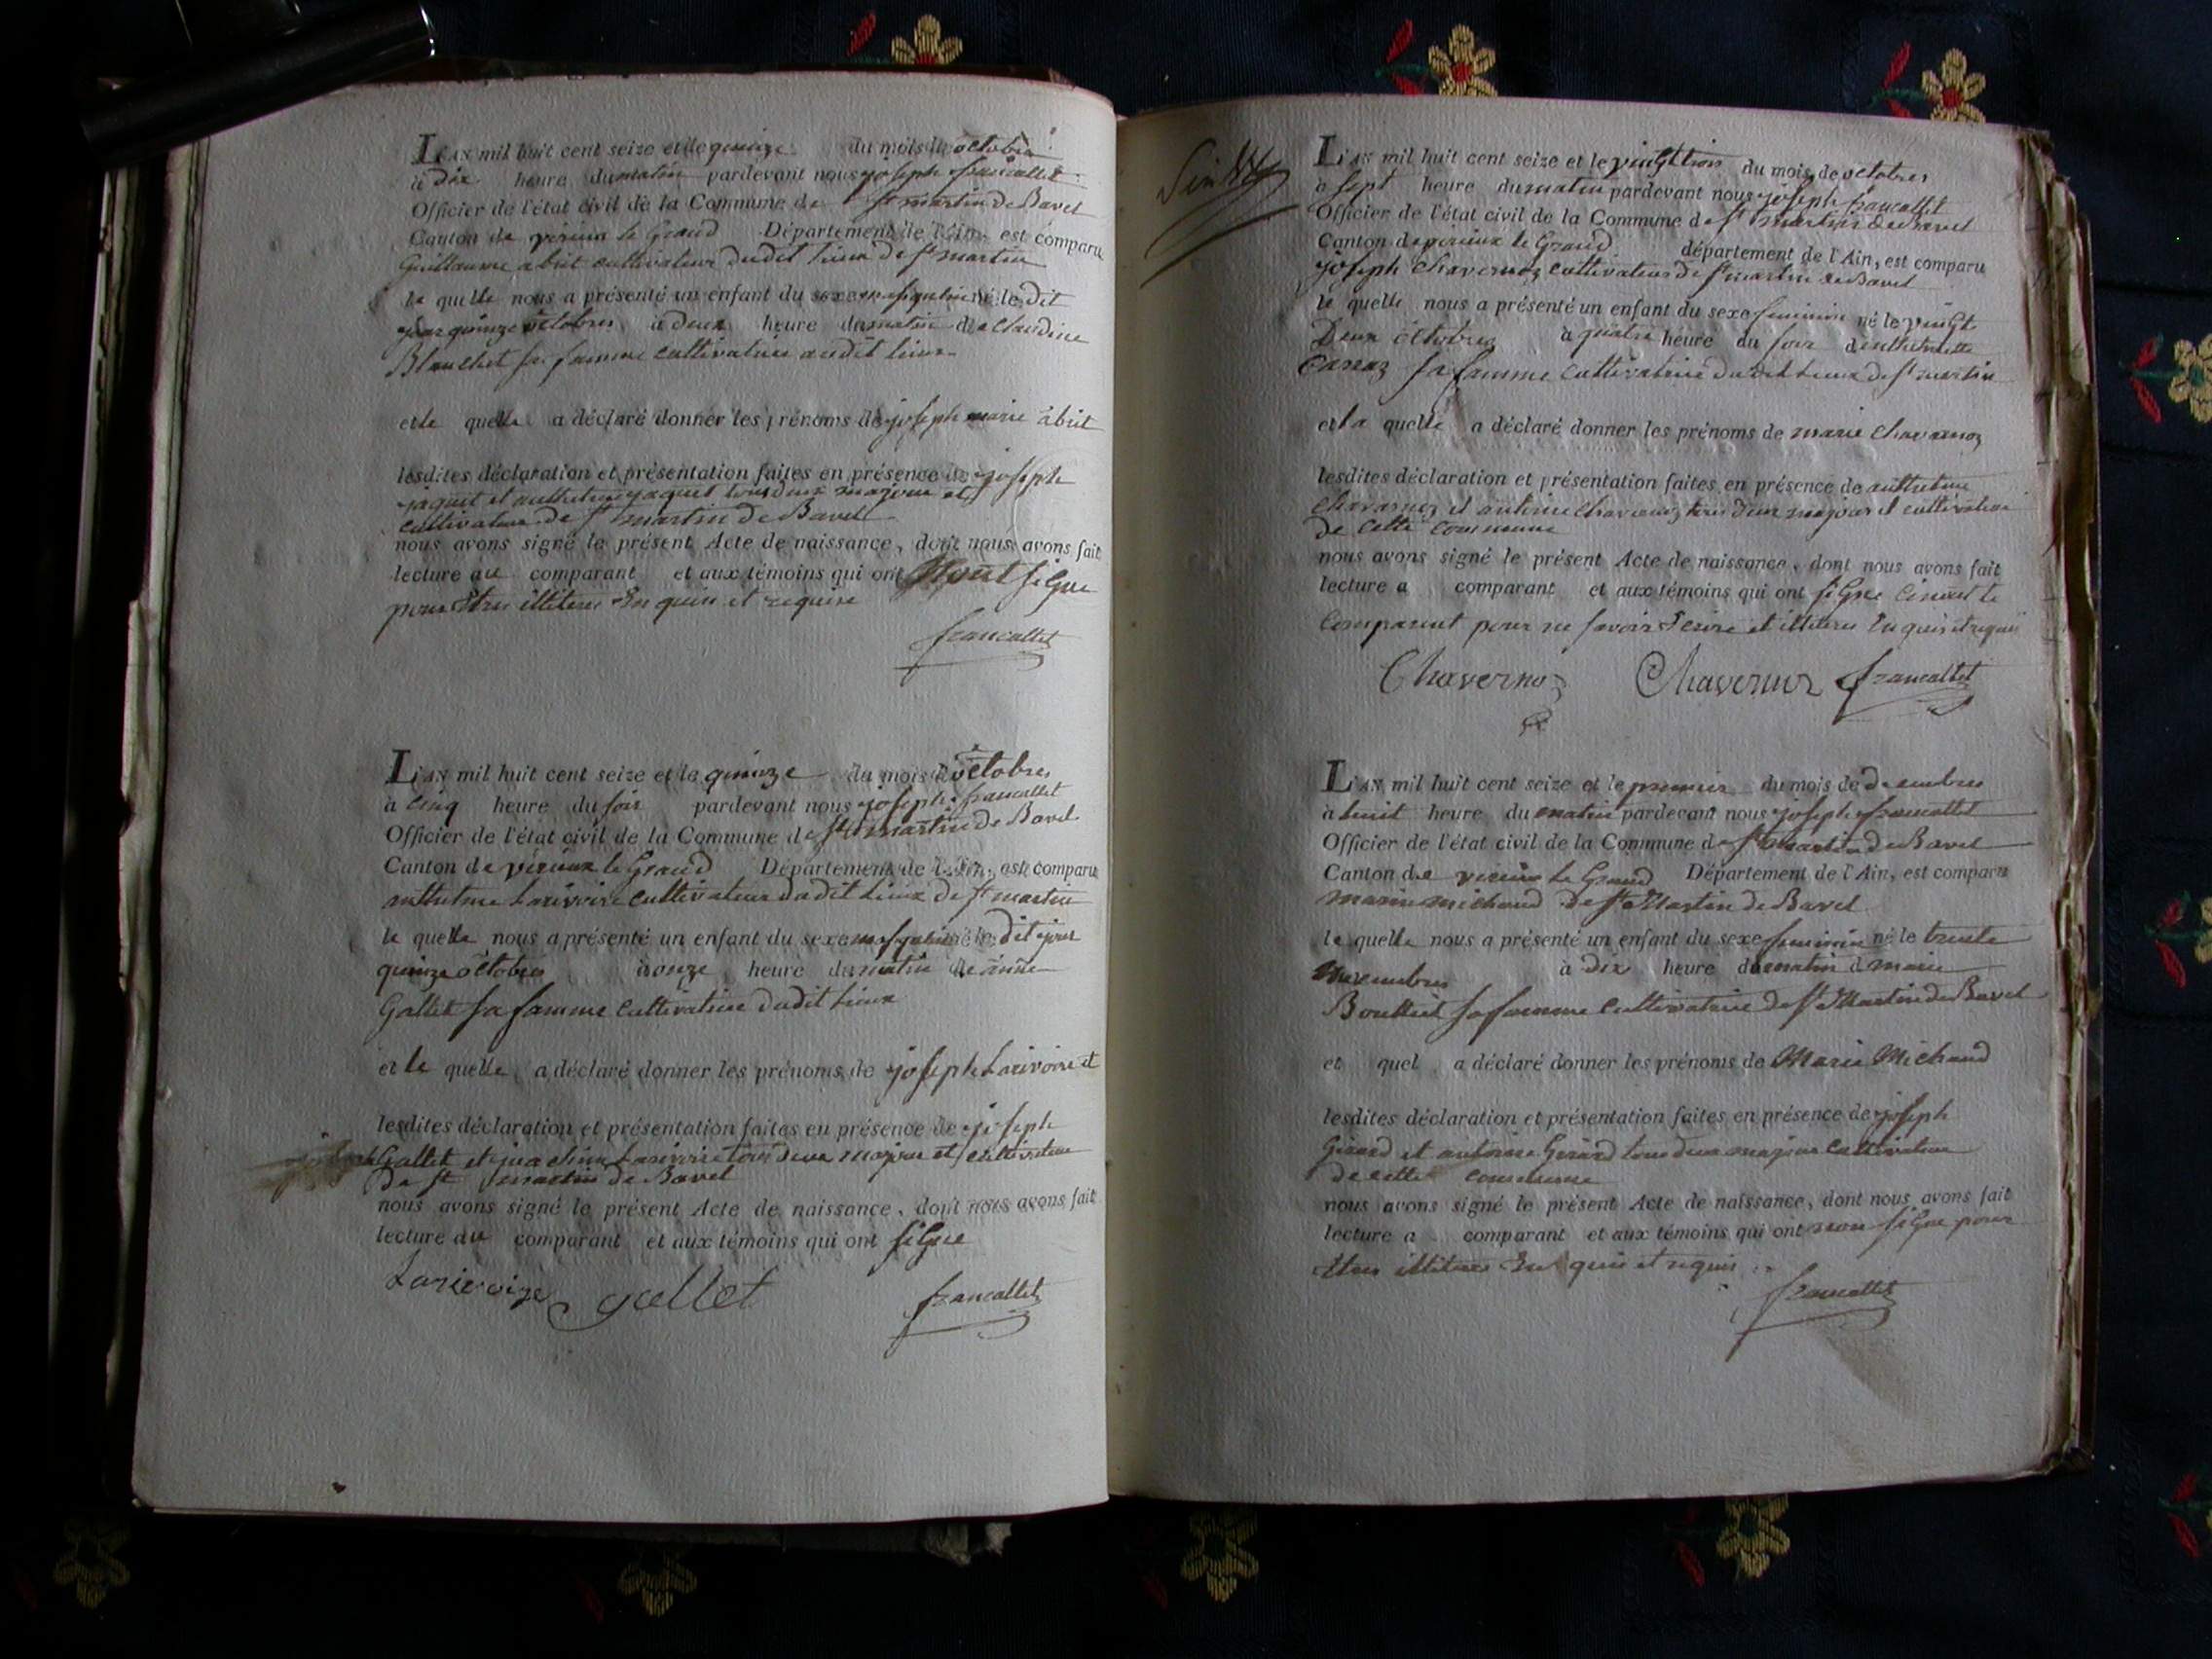 L'AN mil huit cent seize et le quinze du mois de octobre
à dix heure du matin pardevant nous joseph francallet
Officier de l'état civil de la Commune de st martin de Bavel
Canton de virieux le Grand Département de l'Ain, est comparu
Guillaume abrit cultivateur dudit lieux de st martin
le quelle nous a présenté un enfant du sexe né le dit
jour quinze octobres à deux heure du matin de claudine
Blanchet sa famme cultivatrice dudit lieux
et le quelle a déclaré donner les prénoms de joseph marie abrit
lesdites déclaration et présentation faites en présence de joseph
jaquet et jaquet tous deux majour et
cultivateur de st martin de Bavel
nous avons signé le présent Acte de naissance, dont nous avons fait
lecture au comparant et aux témoins qui ont signe
pour Etre illiteres En quis et requise
francallet
L'AN mil huit cent seize et le quinze du mois de octobres
à cinq heure du soir pardevant nous joseph francallet
Officier de l'état civil de la Commune de st martin de Bavel
Canton de virieux le Grand Département de l'Ain, est comparu
anthelme Larivoire cultivateur dudit lieux de st martin
le quelle nous a présenté un enfant du sexe né le dit jour
quinze octobres à onze heure du matin de anne
Gallet sa famme cultivatrice dudit lieux
et le quelle a déclaré donner les prénoms de joseph Larivoire et
lesdites déclaration et présentation faites en présence de joseph
Gallet et Larivoire tous deux majour et cultivateur
de st martin de Bavel
nous avons signé le présent Acte de naissance, dont nous avons fait
lecture au comparant et aux témoins qui ont signe
Larivoire gallet francallet
L'AN mil huit cent seize et le vingttrois du mois de octobres
à sept heure du matin pardevant nous joseph francallet
Officier de l'état civil de la Commune de st martin de Bavel
Canton de virieux le Grand département de l'Ain, est comparu
joseph Chavernoz cultivateur de st martin de Bavel
le quelle nous a présenté un enfant du sexe feminin né le vingt
Deux octobres à quatre heure du soir
Carraz sa famme cultivatrice dudit lieux de st martin
et la quelle a déclaré donner les prénoms de marie Chavarnoz
lesdites déclaration et présentation faites en présence de anthelme
Chavarnoz et antoine Chavarnoz tous deux majour et cultivateur
de cette commune
nous avons signé le présent Acte de naissance, dont nous avons fait
lecture a comparant et aux témoins qui ont signe le
Comparant pour ne savoir Ecrire et illiteres En quis et requis
Chavernoz Chavernoz francallet
L'AN mil huit cent seize et le premier du mois de desembres
à huit heure du matin pardevant nous joseph francallet
Officier de l'état civil de la Commune de st martin de Bavel
Canton de virieux le Grand Département de l'Ain, est comparu
marin michaud de st Martin de Bavel
le quelle nous a présenté un enfant du sexe feminin né le trente
Novembres à dix heure du matin d marie
sa famme cultivatrice de st Martin de Bavel
et quel a déclaré donner les prénoms de Marie Michaud
lesdites déclaration et présentation faites en présence de joseph
Girard et antoine Girard tous deux majour cultivateur
de cette commune
nous avons signé le présent Acte de naissance, dont nous avons fait
lecture a comparant et aux témoins qui ont non signe pour
Etres illiteres En quis et requis
francallet